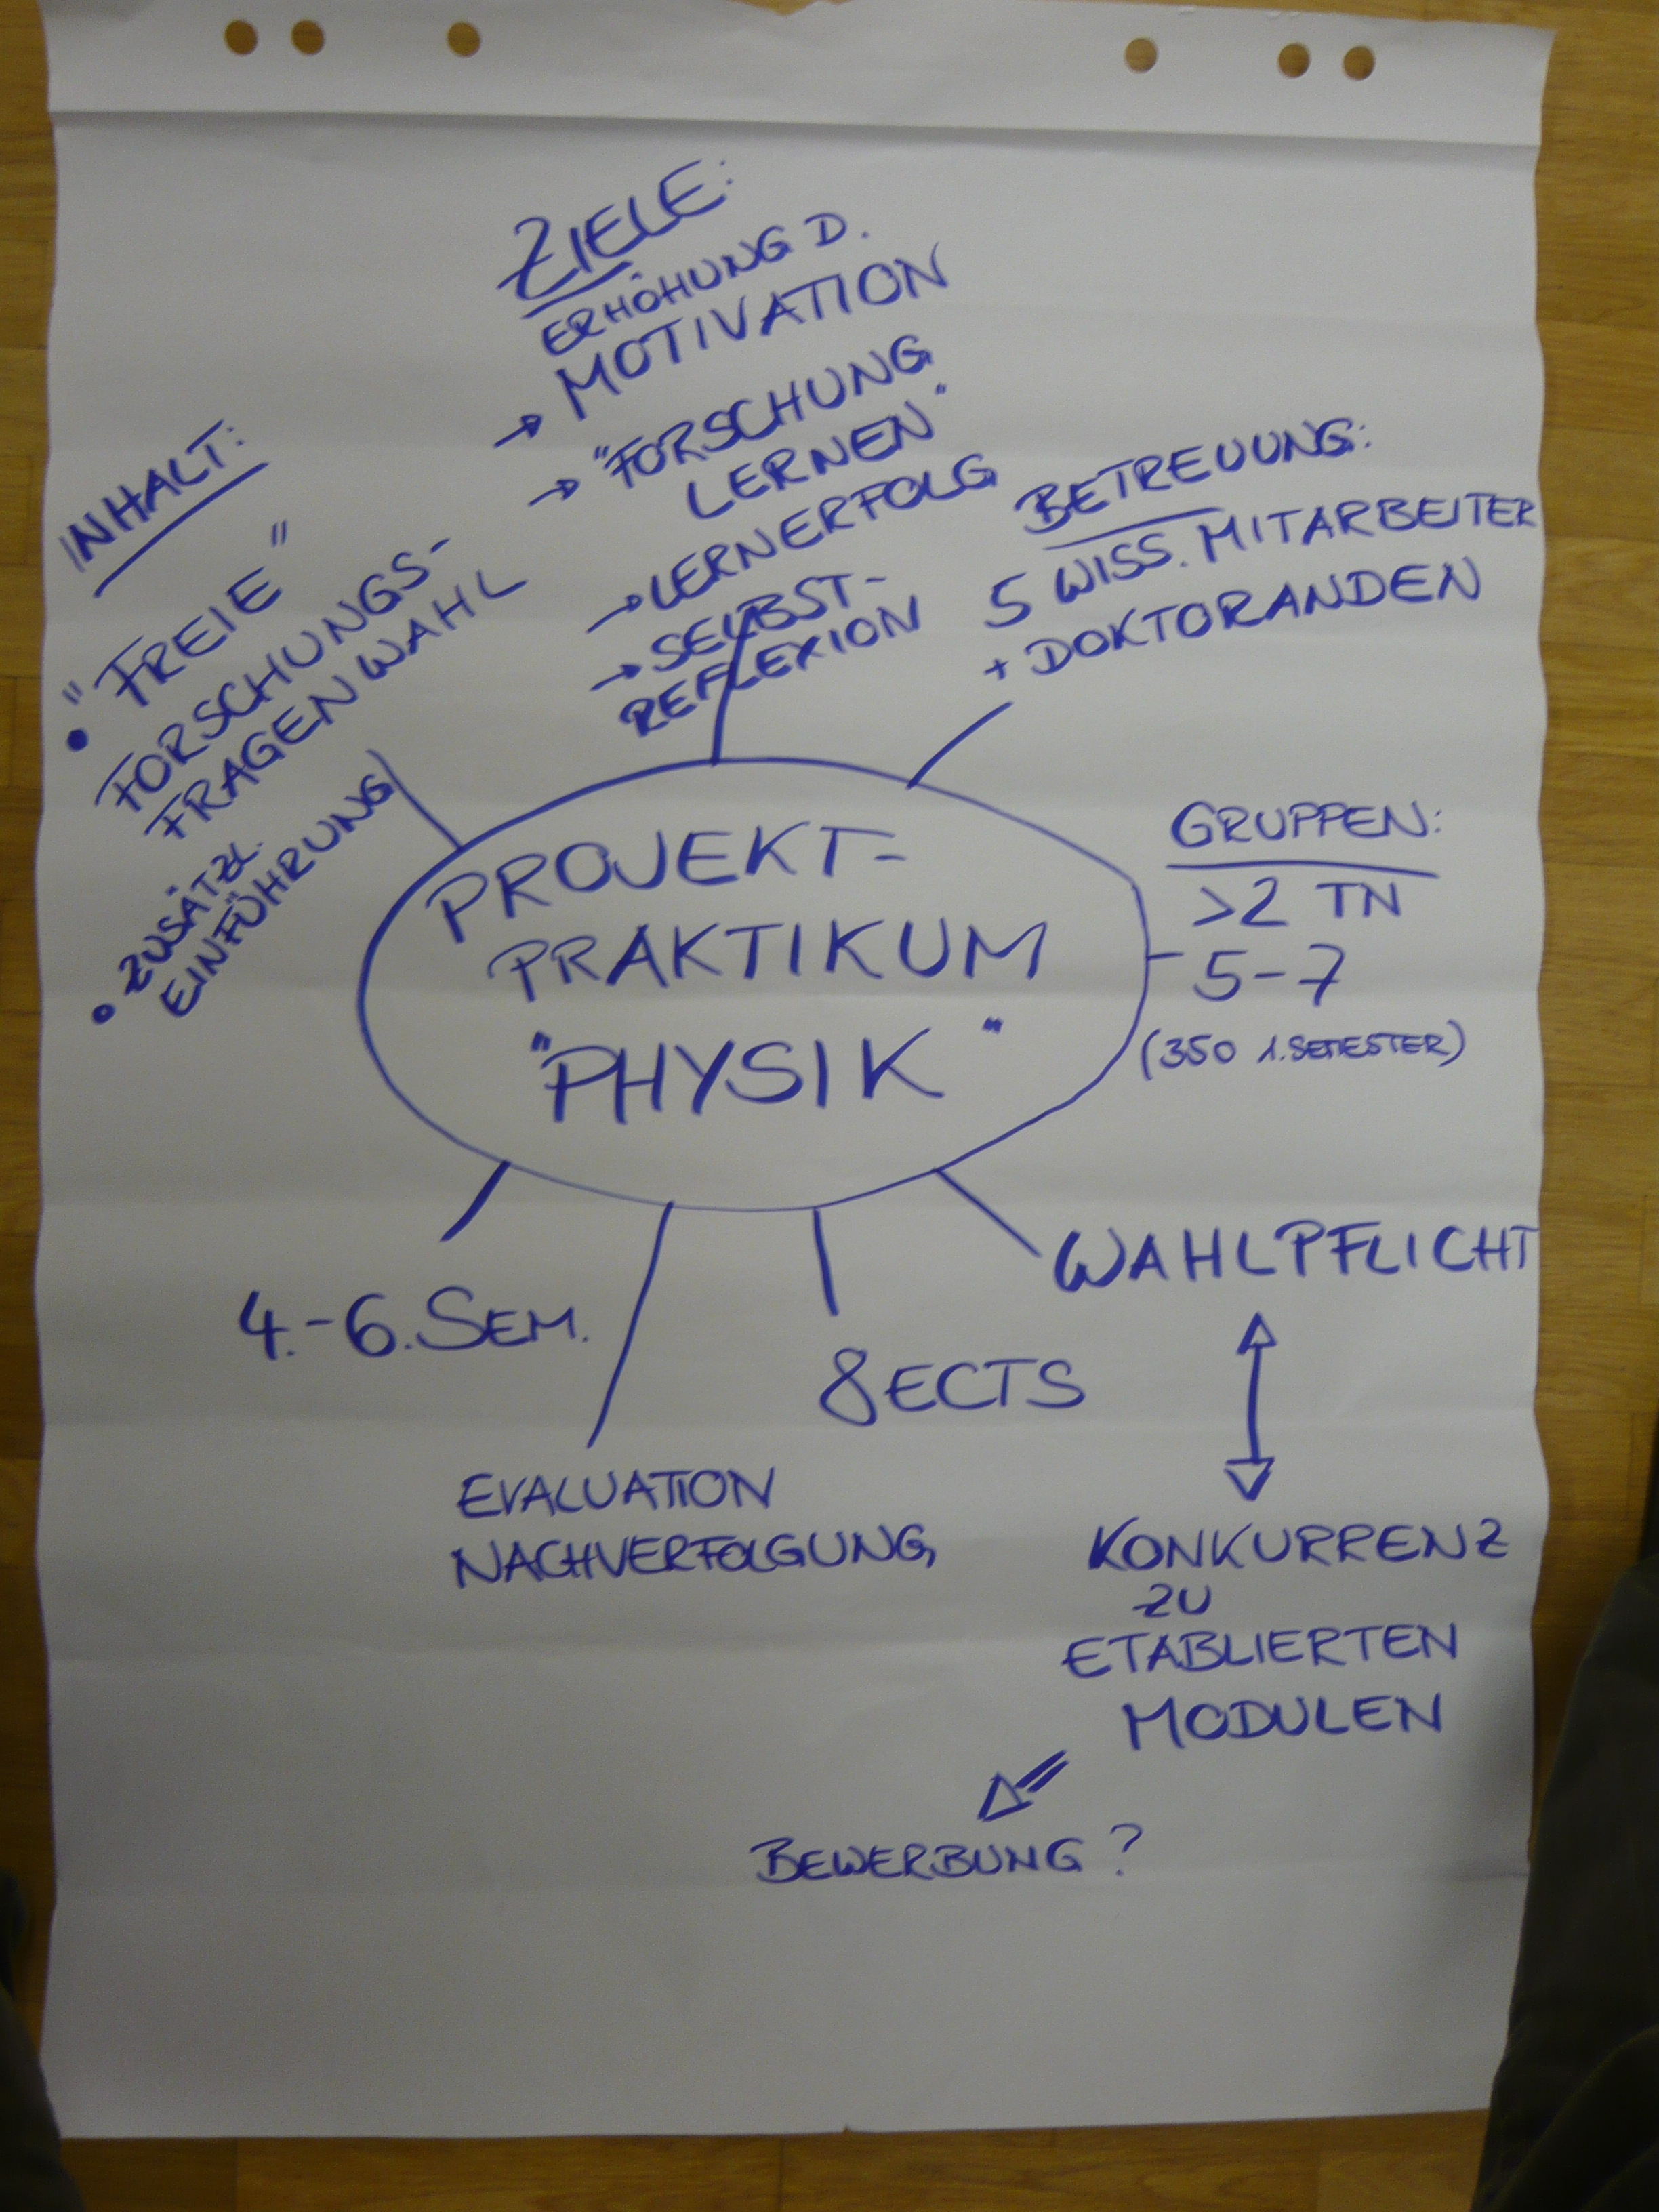 ZIELE:
ERHÖHUNG D.
→ MOTIVATION
→ "FORSCHUNG
LERNEN"
→ LERNERFOLG
→ SELBST-
REFLEXION
INHALT:
• "FREIE"
FORSCHUNGS-
FRAGENWAHL
• ZUSÄTZL.
EINFÜHRUNG
BETREUUNG:
5 WISS. MITARBEITER
+ DOKTORANDEN
GRUPPEN:
>2 TN
5-7
(350 1.SEMESTER)
PROJEKT-
PRAKTIKUM
"PHYSIK"
4.-6. SEM.
EVALUATION
NACHVERFOLGUNG
8 ECTS
WAHLPFLICHT
KONKURRENZ
ZU
ETABLIERTEN
MODULEN
BEWERBUNG?